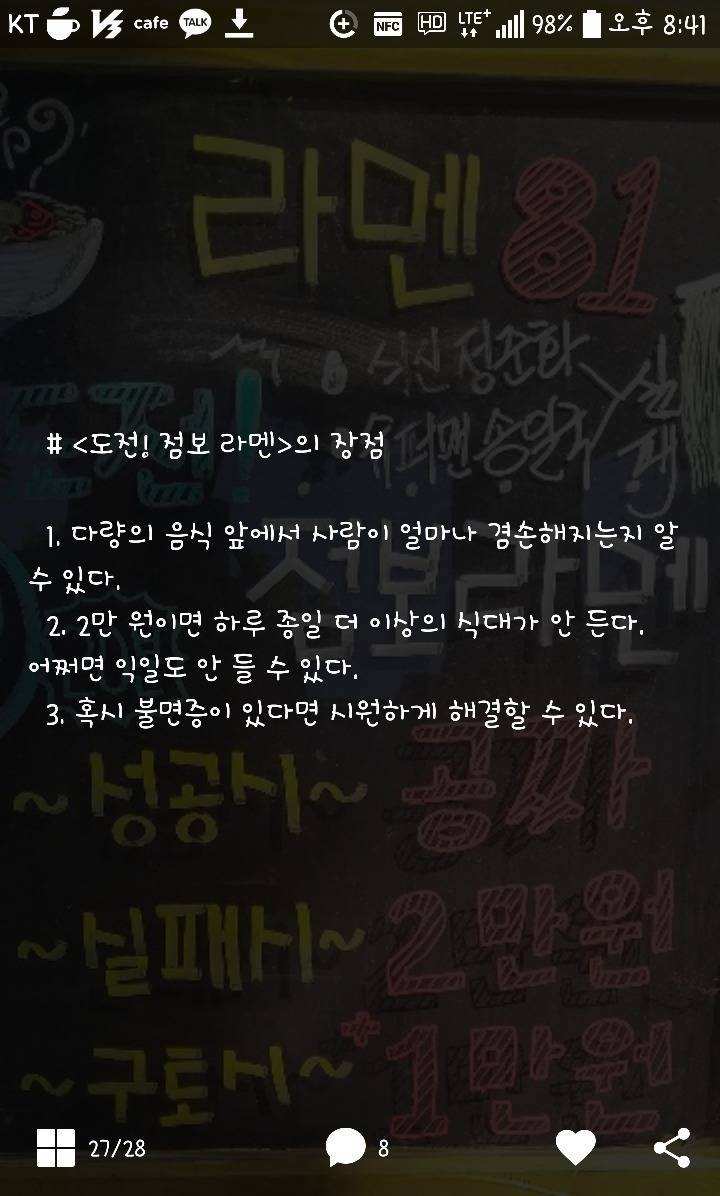 KT cafe TALK NFC HD LTE+ 98% 오후 8:41
라멘 81
식신 정준하
실패
도전!
# <도전! 점보 라멘>의 장점
1. 다량의 음식 앞에서 사람이 얼마나 겸손해지는지 알
수 있다.
점보라멘
2. 2만 원이면 하루 종일 더 이상의 식대가 안 든다.
어쩌면 익일도 안 들 수 있다.
3. 혹시 불면증이 있다면 시원하게 해결할 수 있다.
~성공시~ 공짜
~실패시~ 2만원
~구토시~ +1만원
27/28 8